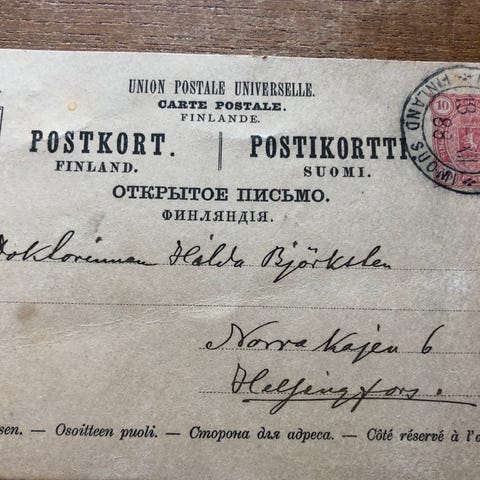 UNION POSTALE UNIVERSELLE.
CARTE POSTALE.
FINLANDE.
POSTKORT. | POSTIKORTTI
FINLAND. SUOMI.
ОТКРЫТОЕ ПИСЬМО.
ФИНЛЯНДІЯ.
10
FINLAND
88
Doktorinnan Hilda Björksten
Norra Kajen 6
Helsingfors.
sen. — Osoitteen puoli. — Сторона для адреса. — Côté réservé à l'a